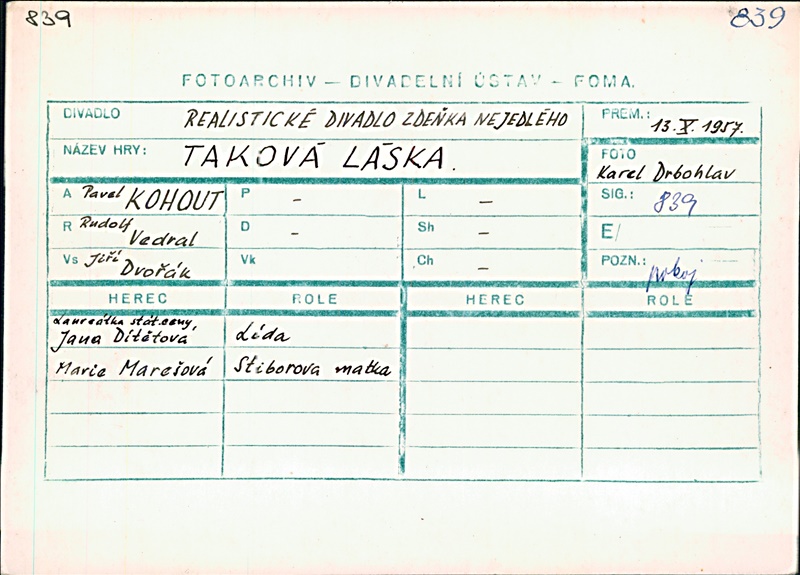 839
839
FOTOARCHIV — DIVADELNÍ ÚSTAV — FOMA.
DIVADLO REALISTICKÉ DIVADLO ZDEŇKA NEJEDLÉHO
PREM.: 13. X. 1957.
NÁZEV HRY: TAKOVÁ LÁSKA.
FOTO
Karel Drbohlav
A Pavel KOHOUT P - L -
SIG.: 839
R Rudolf Vedral D - Sh -
E/
Vs Jiří Dvořák Vk Ch -
POZN.: pokoj
HEREC ROLE HEREC ROLE
Laureátka stát. ceny,
Jana Dítětová, Lída
Marie Marešová Stiborova matka